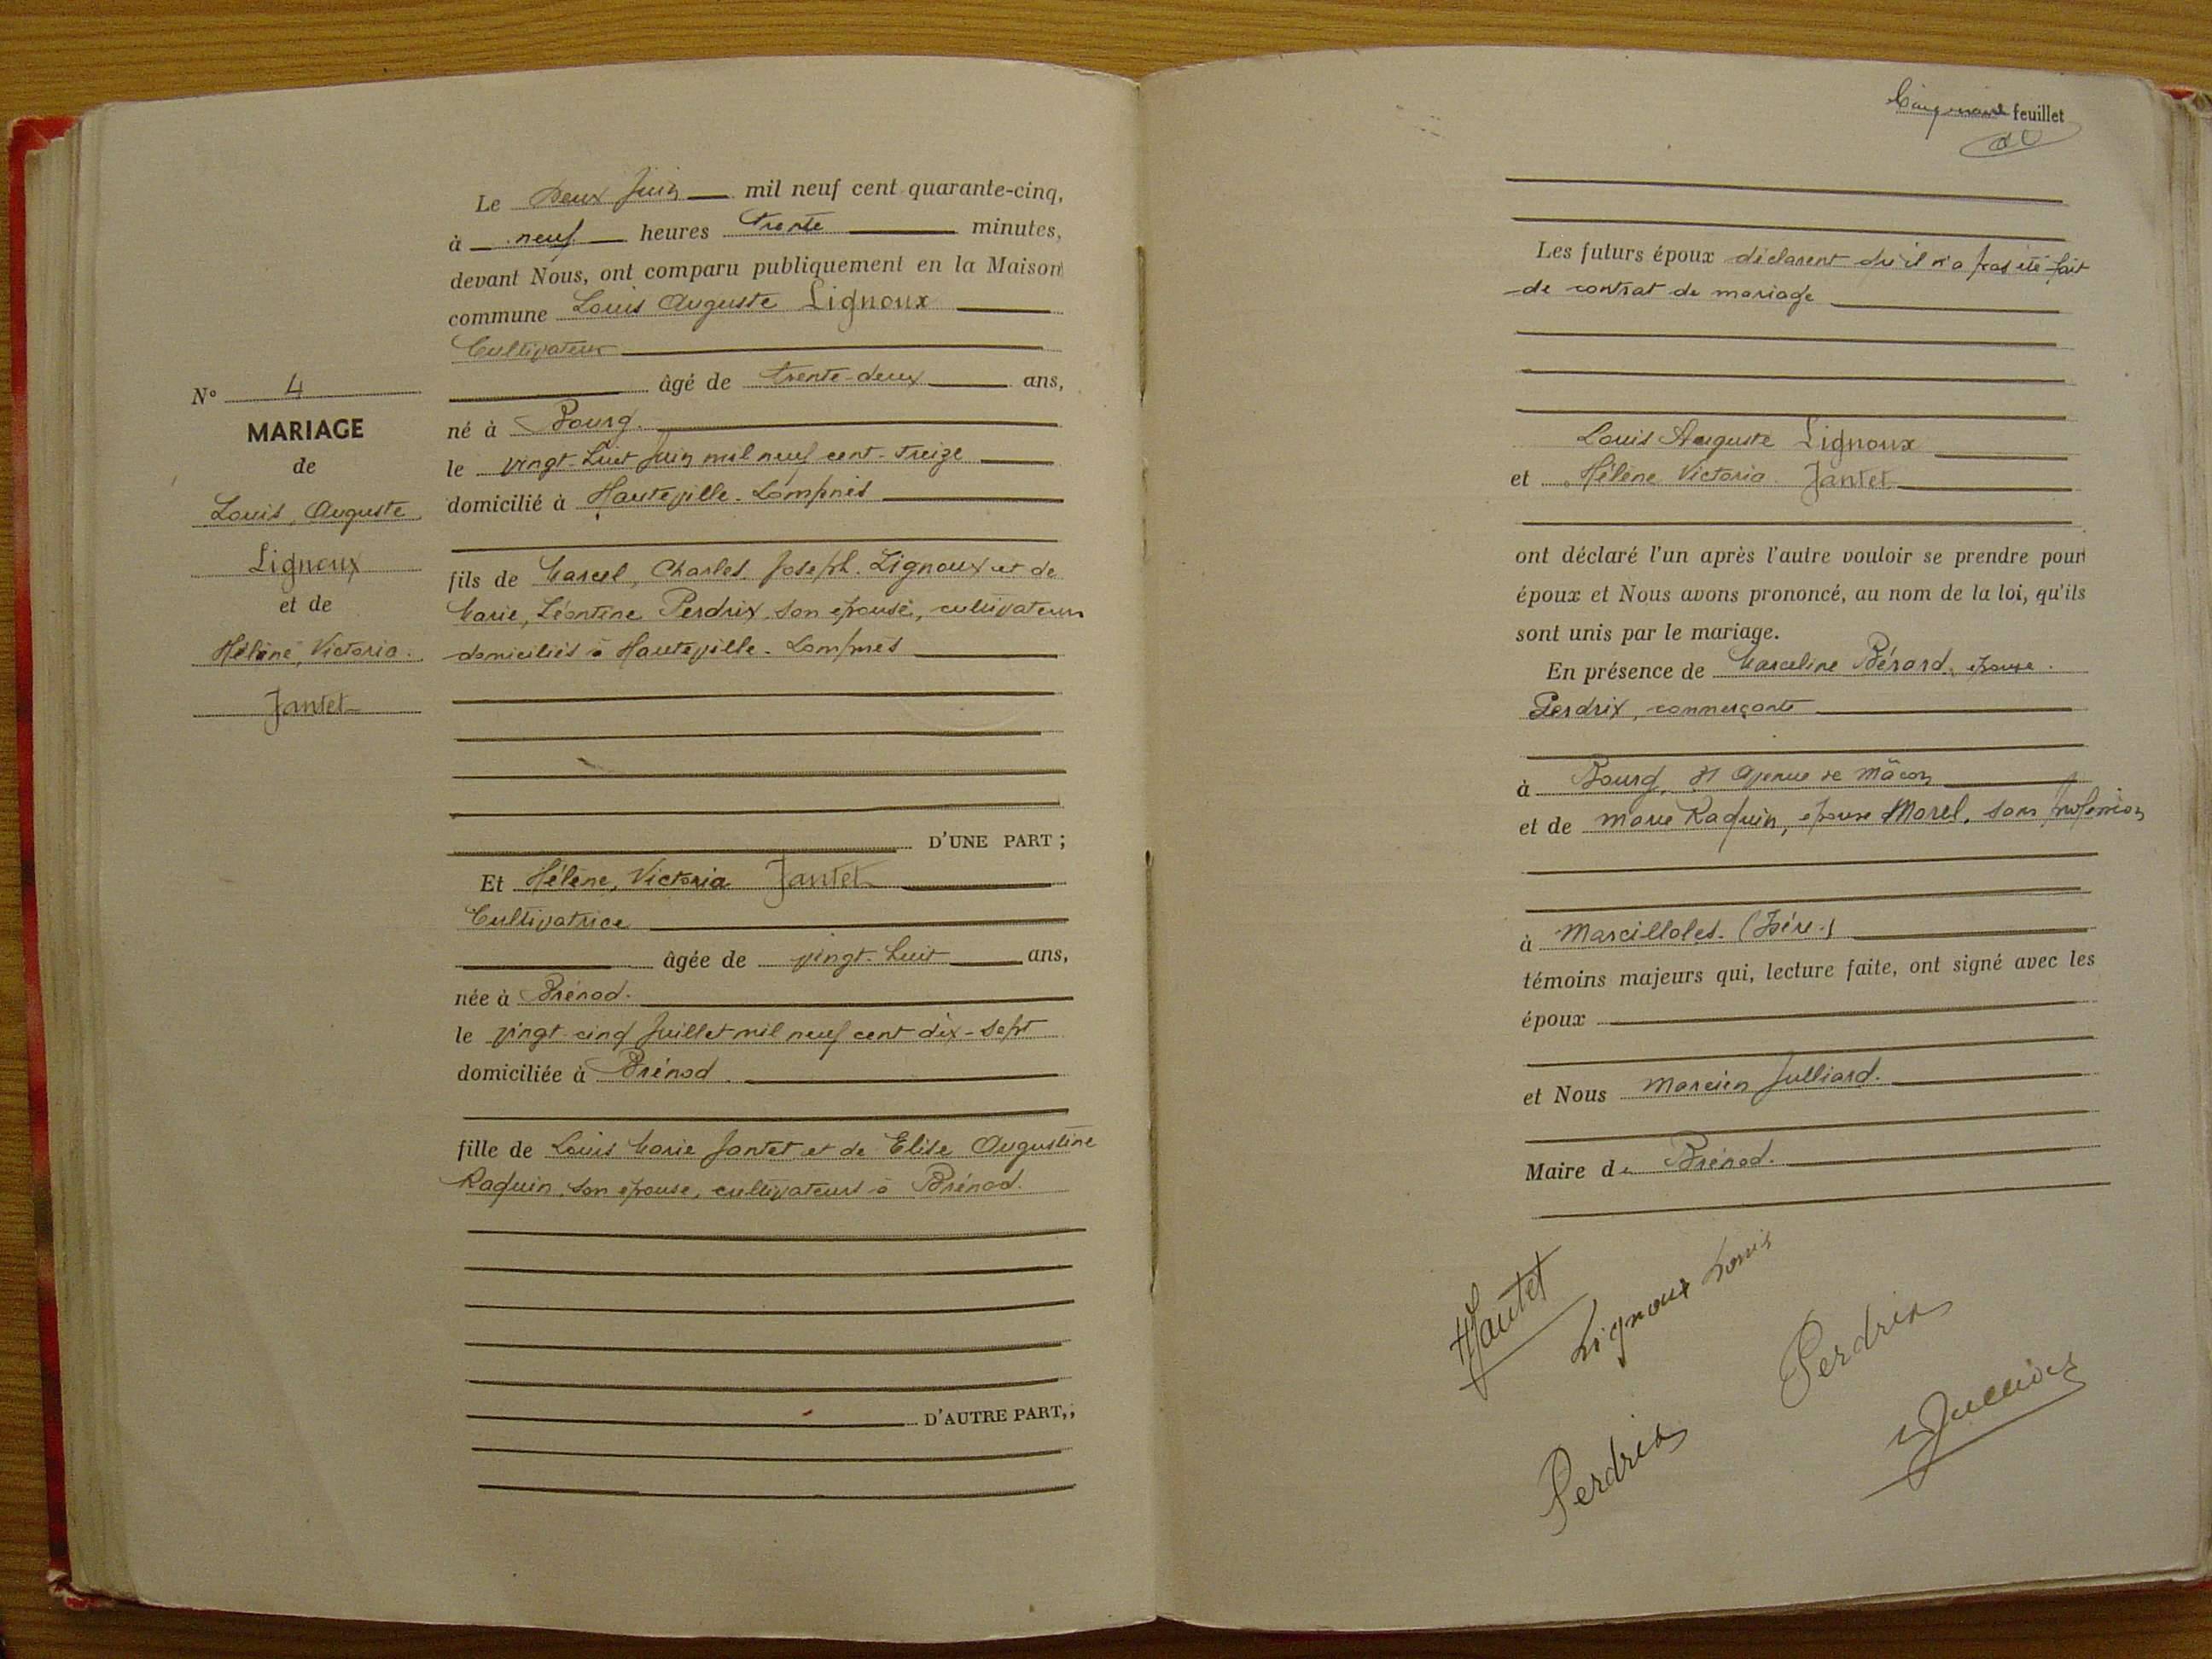 Le Deux Juin mil neuf cent quarante-cinq,
à neuf heures trente minutes,
devant Nous, ont comparu publiquement en la Maison
commune Louis Auguste Lignoux
Cultivateur
âgé de trente-deux ans,
né à Bourg.
le vingt-huit Juin mil neuf cent-treize
domicilié à Hauteville-Lompnès
fils de Marcel, Charles, Joseph Lignoux et de
Marie, Léontine Perdrix, son épouse, cultivateurs
domiciliés à Hauteville-Lompnès
D'UNE PART ;
N° 4
MARIAGE
de
Louis, Auguste
Lignoux
et de
Hélène, Victoria.
Jantet
Et Hélène, Victoria Jantet
Cultivatrice
âgée de vingt-huit ans,
née à Brénod.
le vingt-cinq Juillet mil neuf cent dix-sept
domiciliée à Brénod.
fille de Louis Marie Jantet et de Elise Augustine
Raquin, son épouse, cultivateurs à Brénod.
D'AUTRE PART,;
feuillet
Les futurs époux déclarent qu'il n'a pas été fait
de contrat de mariage
Louis Auguste Lignoux
et Hélène Victoria Jantet
ont déclaré l'un après l'autre vouloir se prendre pour
époux et Nous avons prononcé, au nom de la loi, qu'ils
sont unis par le mariage.
En présence de Marceline Bérard, épouse
Perdrix, commerçante
à Bourg, Avenue de Mâcon
et de Marie Raquin, épouse Morel, sans profession
à Marcilloles. (Isère.)
témoins majeurs qui, lecture faite, ont signé avec les
époux
et Nous Marcien Julliard.
Maire de Brénod.
HJantet
Lignoux Louis
Perdrix
Perdrix